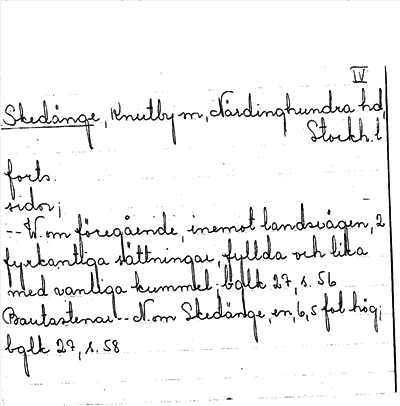 IV
Skedänge, Knutby sn, Närdinghundra hd,
Stockh. l
forts.
sidor;
-- V. om föregående, inemot landsvägen, 2
fyrkantliga sättningar, fyllda och lika
med vanliga kummel; bglk 27, s. 56
Bautastenar -- N. om Skedänge, en, 6,5 fot hög;
bglk 27, s. 58